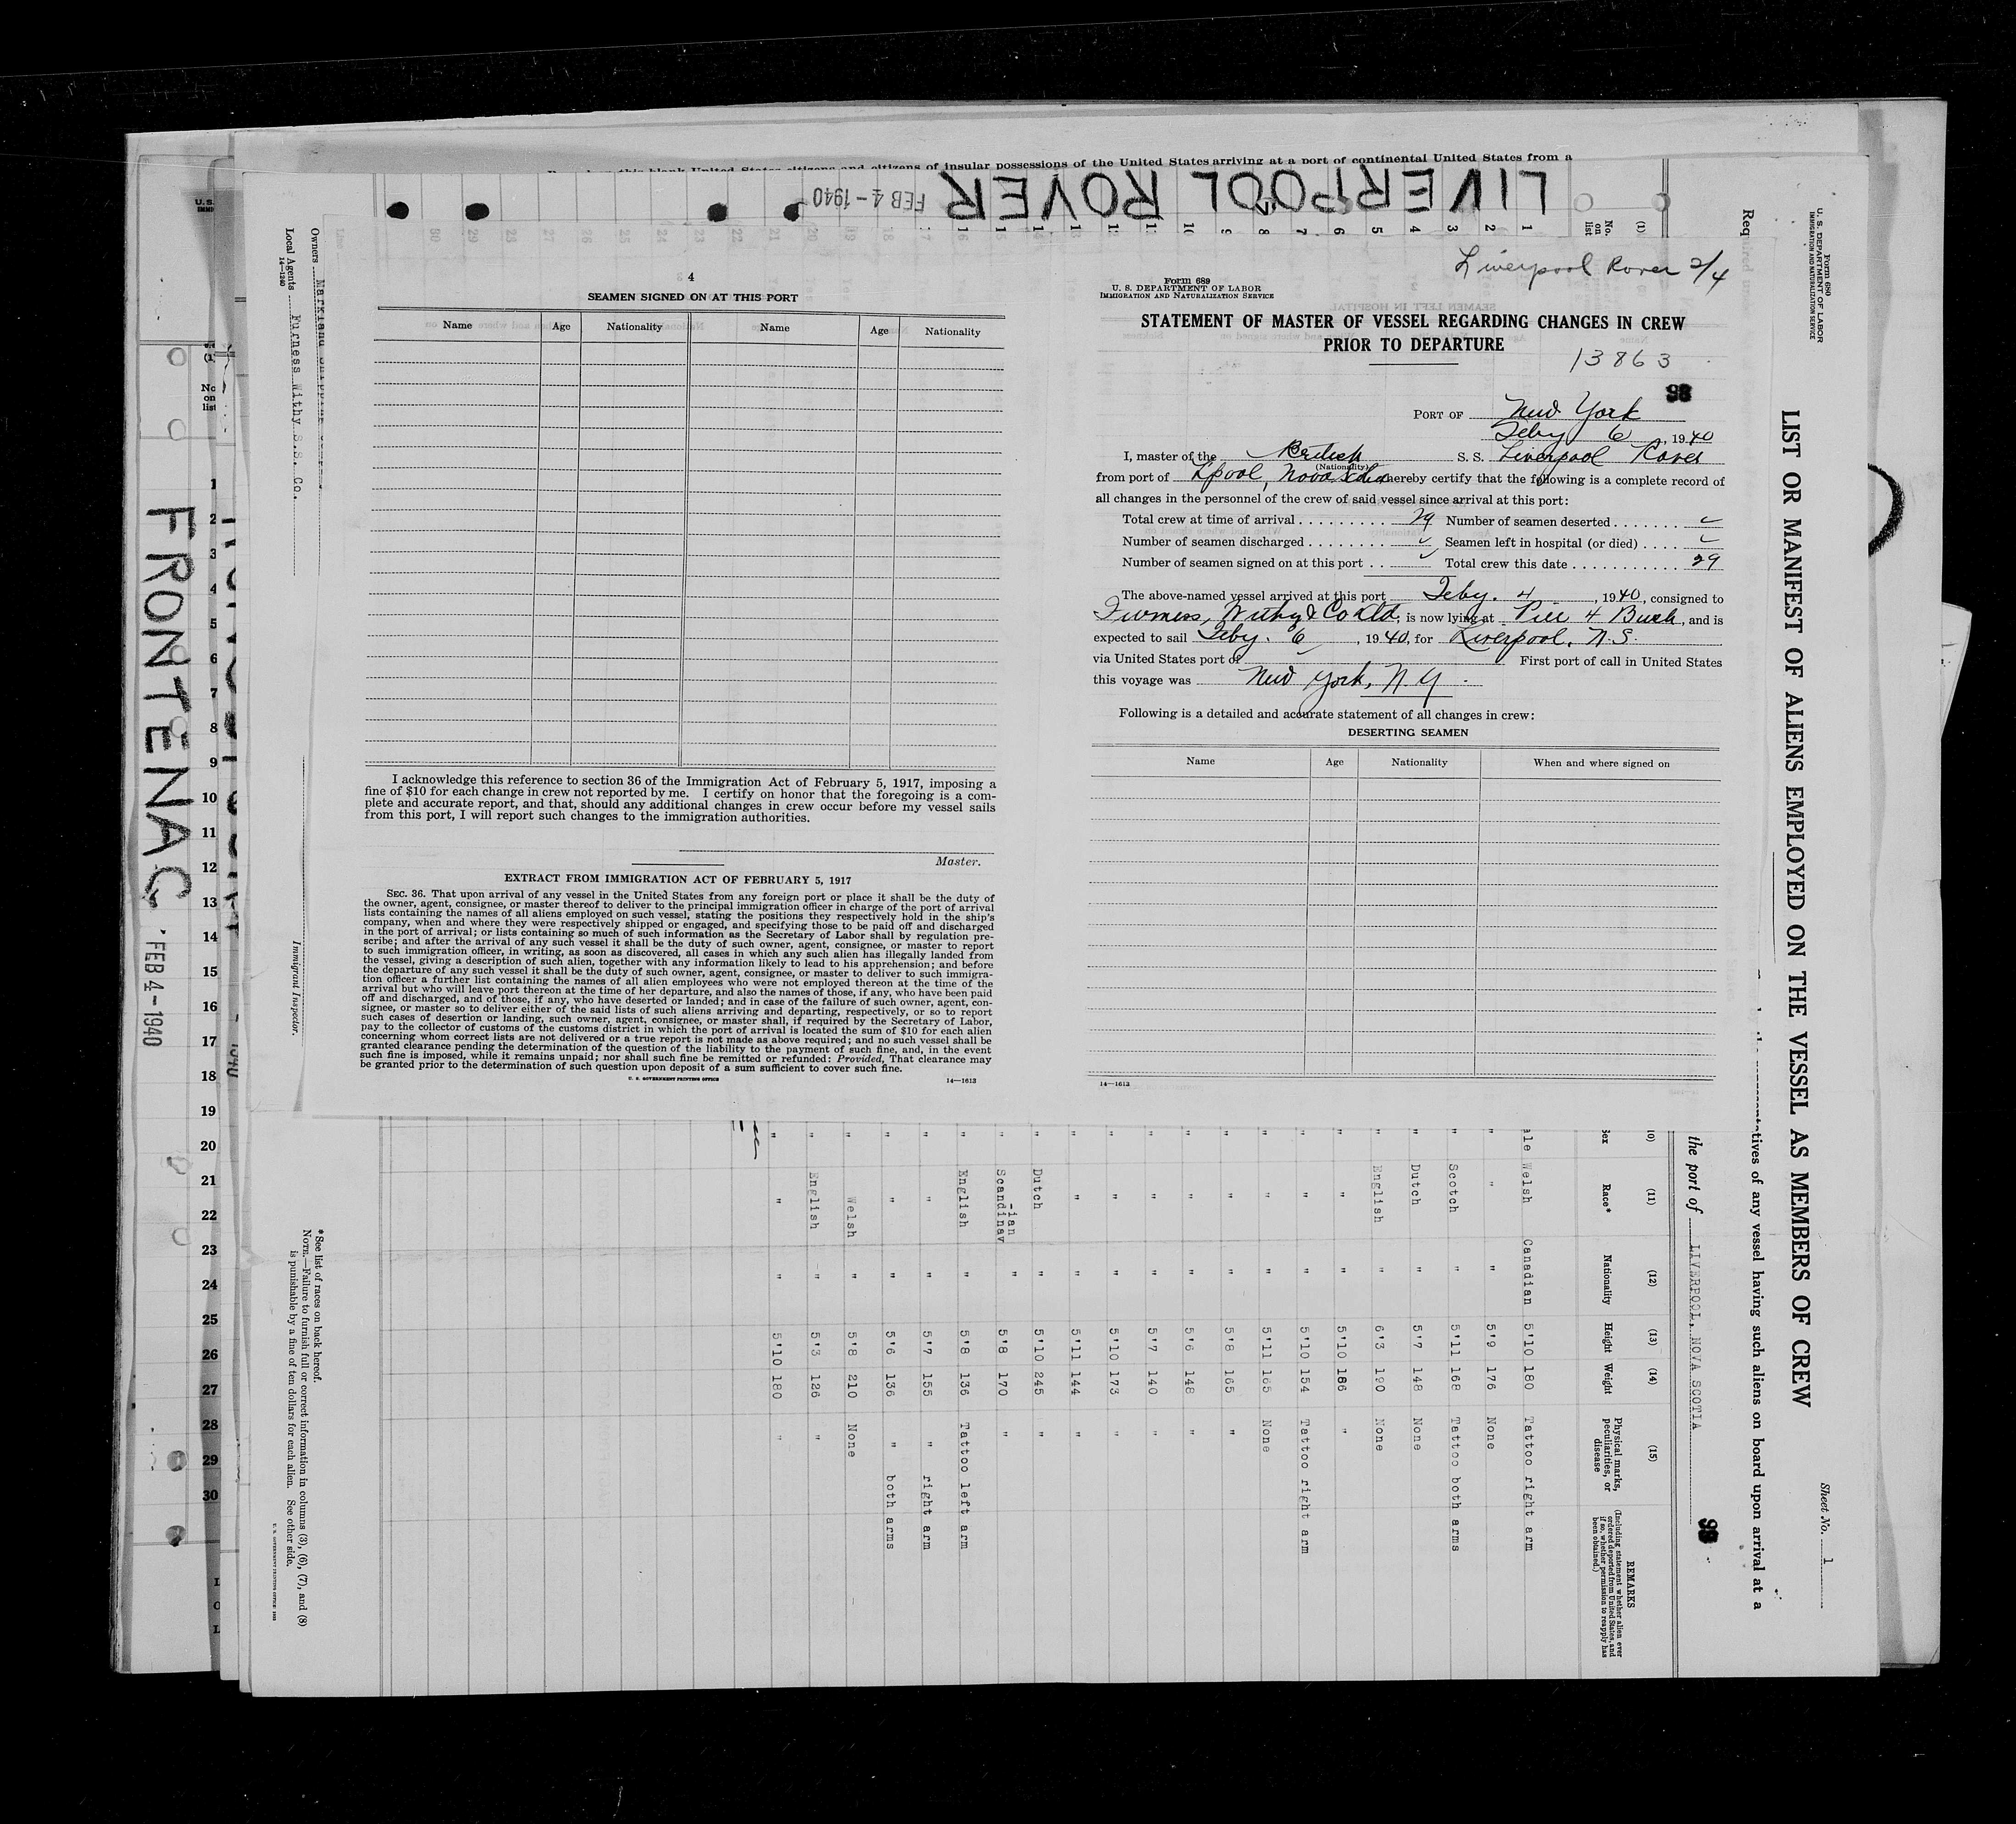 LIVERPOOL ROVER
FEB 4-1940
Liverpool Rover 2/4
4
SEAMEN SIGNED ON AT THIS PORT
Name Age Nationality Name Age Nationality
I acknowledge this reference to section 36 of the Immigration Act of February 5, 1917, imposing a
fine of $10 for each change in crew not reported by me. I certify on honor that the foregoing is a com-
plete and accurate report, and that, should any additional changes in crew occur before my vessel sails
from this port, I will report such changes to the immigration authorities.
Master.
EXTRACT FROM IMMIGRATION ACT OF FEBRUARY 5, 1917
SEC. 36. That upon arrival of any vessel in the United States from any foreign port or place it shall be the duty of
the owner, agent, consignee, or master thereof to deliver to the principal immigration officer in charge of the port of arrival
lists containing the names of all aliens employed on such vessel, stating the positions they respectively hold in the ship's
company, when and where they were respectively shipped or engaged, and specifying those to be paid off and discharged
in the port of arrival; or lists containing so much of such information as the Secretary of Labor shall by regulation pre-
scribe; and after the arrival of any such vessel it shall be the duty of such owner, agent, consignee, or master to report
to such immigration officer, in writing, as soon as discovered, all cases in which any such alien has illegally landed from
the vessel, giving a description of such alien, together with any information likely to lead to his apprehension; and before
the departure of any such vessel it shall be the duty of such owner, agent, consignee, or master to deliver to such immigra-
tion officer a further list containing the names of all alien employees who were not employed thereon at the time of the
arrival but who will leave port thereon at the time of her departure, and also the names of those, if any, who have been paid
off and discharged, and of those, if any, who have deserted or landed; and in case of the failure of such owner, agent, con-
signee, or master so to deliver either of the said lists of such aliens arriving and departing, respectively, or so to report
such cases of desertion or landing, such owner, agent, consignee, or master shall, if required by the Secretary of Labor,
pay to the collector of customs of the customs district in which the port of arrival is located the sum of $10 for each alien
concerning whom correct lists are not delivered or a true report is not made as above required; and no such vessel shall be
granted clearance pending the determination of the question of the liability to the payment of such fine, and, in the event
such fine is imposed, while it remains unpaid; nor shall such fine be remitted or refunded: Provided, That clearance may
be granted prior to the determination of such question upon deposit of a sum sufficient to cover such fine.
U. S. GOVERNMENT PRINTING OFFICE 14—1613
Form 689
U. S. DEPARTMENT OF LABOR
IMMIGRATION AND NATURALIZATION SERVICE
STATEMENT OF MASTER OF VESSEL REGARDING CHANGES IN CREW
PRIOR TO DEPARTURE
13863
PORT OF New York
Feby 6, 1940
I, master of the British S. S. Liverpool Rover
(Nationality)
from port of L'pool, Nova Scotia hereby certify that the following is a complete record of
all changes in the personnel of the crew of said vessel since arrival at this port:
Total crew at time of arrival 29 Number of seamen deserted ✓
Number of seamen discharged ✓ Seamen left in hospital (or died) ✓
Number of seamen signed on at this port ✓ Total crew this date 29
The above-named vessel arrived at this port Feby. 4, 1940, consigned to
Furness, Withy & Co Ltd, is now lying at Pier 4 Bush, and is
expected to sail Feby. 6, 1940, for Liverpool, N.S.
via United States port of First port of call in United States
this voyage was New York, N.Y.
Following is a detailed and accurate statement of all changes in crew:
DESERTING SEAMEN
Name Age Nationality When and where signed on
14—1613
Form 680
U. S. DEPARTMENT OF LABOR
IMMIGRATION AND NATURALIZATION SERVICE
LIST OR MANIFEST OF ALIENS EMPLOYED ON THE VESSEL AS MEMBERS OF CREW
Sheet No. 1
tives of any vessel having such aliens on board upon arrival at a
the port of LIVERPOOL, NOVA SCOTIA
(1) (11) (12) (13) (14) (15)
No. on list Race* Nationality Height Weight Physical marks, peculiarities, or disease
REMARKS
(Including statement whether alien ever ordered deported from United States, and if so, whether permission to reapply has been obtained.)
Welsh Canadian 5'10 180 Tattoo right arm
" " 5'9 176 None
" Scotch " 5'11 168 Tattoo both arms
" Dutch " 5'7 148 None
" English " 6'3 190 None
" " " 5'10 186 "
" " " 5'10 154 Tattoo right arm
" " " 5'11 165 None
" " " 5'8 165 "
" " " 5'6 148 "
" " " 5'7 140 "
" " " 5'10 173 "
" " " 5'11 144 "
" Dutch " 5'10 245 "
" Scandinav-ian " 5'8 170 "
" English " 5'8 136 Tattoo left arm
" " " 5'7 155 " right arm
" " " 5'6 136 " both arms
" Welsh " 5'8 210 None
" English " 5'3 126 "
" " " 5'10 180 "
*See list of races on back hereof.
NOTE.—Failure to furnish full or correct information in columns (3), (6), (7), and (8)
is punishable by a fine of ten dollars for each alien. See other side.
Owners
Local Agents Furness Withy S.S. Co.
14—1240
Immigrant Inspector.
FRONTENAC
FEB 4-1940
1
2
3
4
5
6
7
8
9
10
11
12
13
14
15
16
17
18
19
20
21
22
23
24
25
26
27
28
29
30